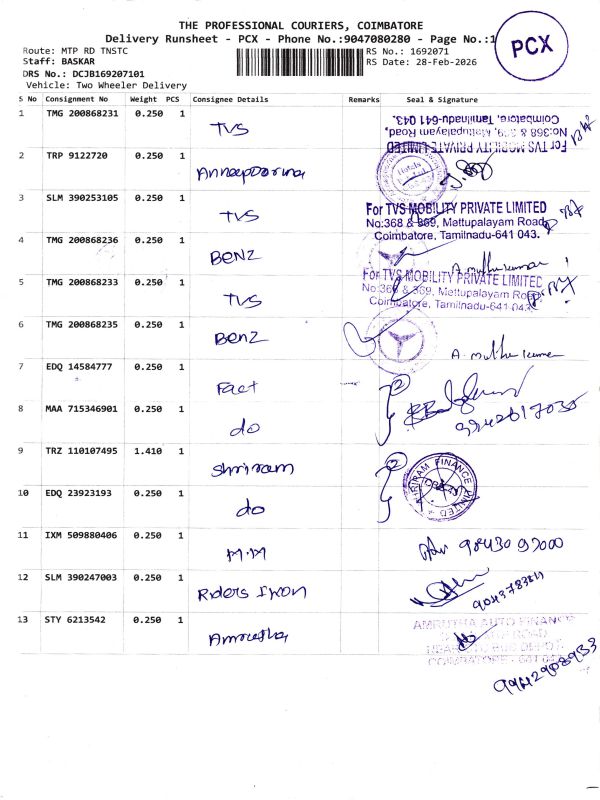 THE PROFESSIONAL COURIERS, COIMBATORE
Delivery Runsheet - PCX - Phone No.:9047080280 - Page No.:1
PCX
Route: MTP RD TNSTC
RS No.: 1692071
Staff: BASKAR
RS Date: 28-Feb-2026
DRS No.: DCJB169207101
Vehicle: Two Wheeler Delivery
S No Consignment No Weight PCS Consignee Details Remarks Seal & Signature
1 TMG 200868231 0.250 1 TVS
For TVS MOBILITY PRIVATE LIMITED
No:368 & 369, Mettupalayam Road,
Coimbatore, Tamilnadu-641 043.
2 TRP 9122720 0.250 1
3 SLM 390253105 0.250 1 TVS
For TVS MOBILITY PRIVATE LIMITED
No:368 & 369, Mettupalayam Road,
Coimbatore, Tamilnadu-641 043.
4 TMG 200868236 0.250 1 BENZ
A. muthukumar
5 TMG 200868233 0.250 1 TVS
For TVS MOBILITY PRIVATE LIMITED
No:368 & 369, Mettupalayam Road,
Coimbatore, Tamilnadu-641 043.
6 TMG 200868235 0.250 1 Benz
A. muthukumar
7 EDQ 14584777 0.250 1 Fact
8 MAA 715346901 0.250 1 do
9 TRZ 110107495 1.410 1 Shriram
SHRIRAM FINANCE LIMITED
10 EDQ 23923193 0.250 1 do
11 IXM 509880406 0.250 1 M.M
12 SLM 390247003 0.250 1 Riders Iron
13 STY 6213542 0.250 1 Amrutha
AMRUTHA AUTO FINANCE
COIMBATORE - 641 043
9942908953